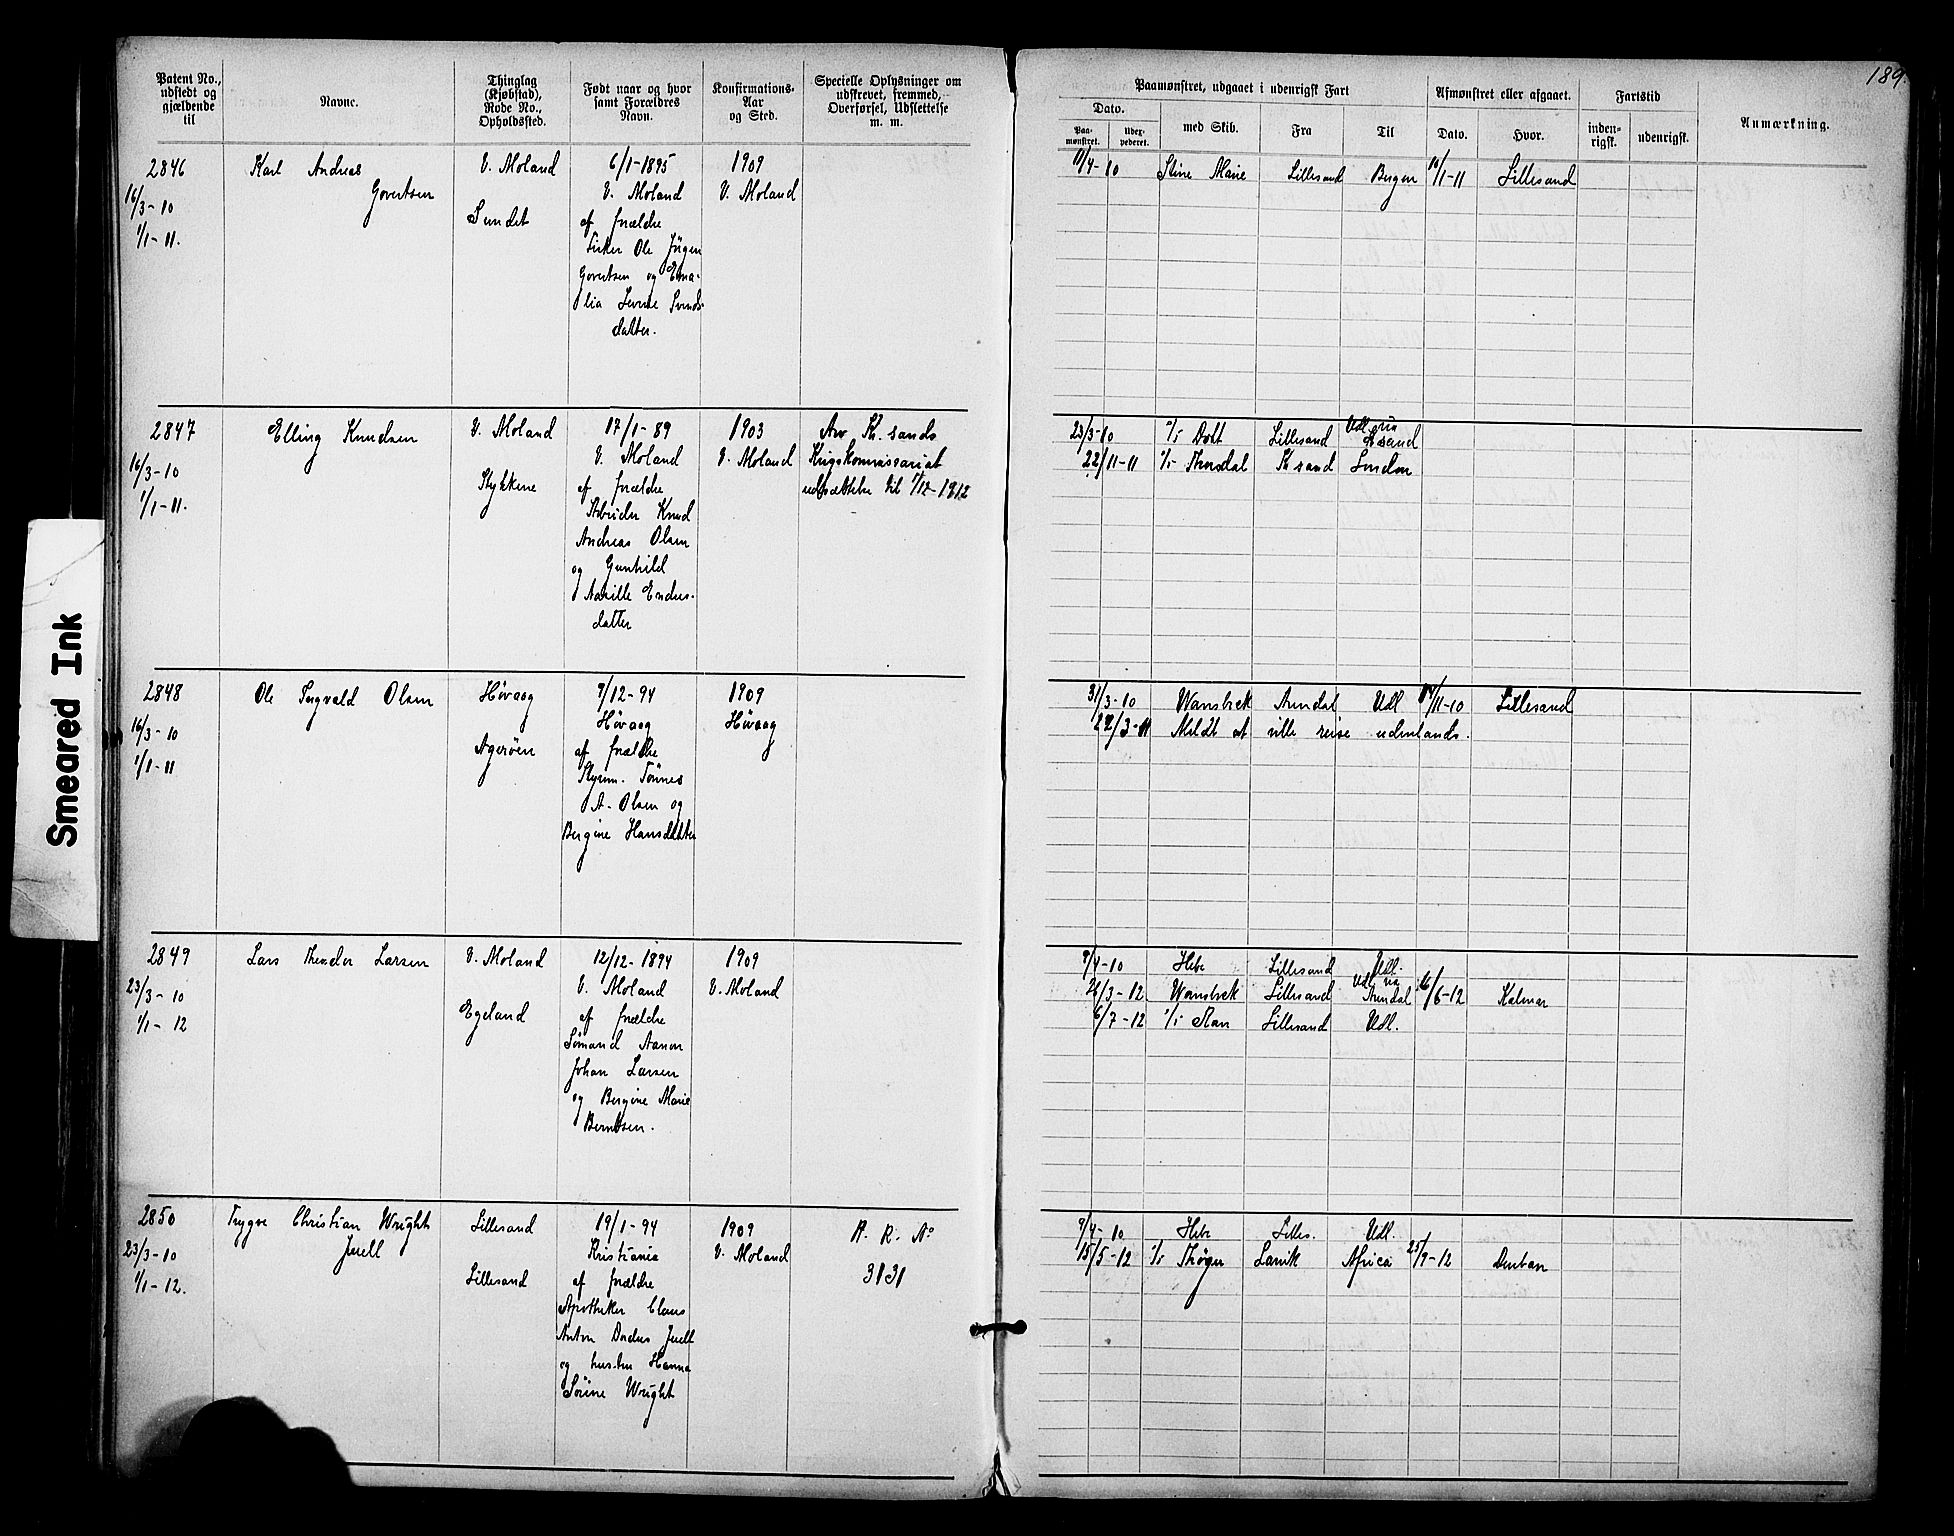 189.
Patent No., udstedt og gjældende til
Navne.
Thinglag (Kjøbstad), Rode No., Opholdssted.
Født naar og hvor samt Forældres Navn.
Konfirmations-Aar og Sted.
Specielle Oplysninger om udskrevet, fremmed, Overførsel, Udslettelse m. m.
Paamønstret, udgaaet i udenrigsk Fart
Dato.
Paa-mønstret.
Udex-pederet.
med Skib.
Fra
Til
Afmønstret eller afgaaet.
Dato.
Hvor.
Fartstid
inden-rigsk.
udenrigsk.
Anmærkning.
2846
16/3-10
1/1-11.
Karl Andreas
Govertsen
V. Moland
Sundet
6/1-1895
V. Moland
af forældre
Fisker Ole Jürgen
Govertsen og Ema-
lia Severine Svends-
datter.
1909
V. Moland
11/4-10 Stine Marie Lillesand Bergen 10/1-11 Lillesand
2847
16/3-10
1/1-11.
Elling Knudsen
V. Moland
Stykkene
17/1-89
V. Moland
af forældre
Arbeider Knud
Andreas Olsen
og Gunhild
Aasille Enders-
datter
1903
V. Moland
Anv Kr.sands
Krigskommissariat
udsættelse til 1/12-1912
23/3-10 S/S Dolt Lillesand Udl. via Kr.sand
22/11-11 S/S Thorsdal Kr sand London
2848
16/3-10
1/1-11
Ole Torgvald Olsen
Høvaag
Agerøen
9/12-94
Høvaag
af forældre
Styrm. Tønnes
A. Olsen og
Bergine Hansdatter
1909
Høvaag
31/3-10 Wansbek Arendal Udl 14/11-10 Lillesand
22/3-11 Meldt at ville reise udenlands.
2849
23/3-10
1/1-12
Lars Theodor Larsen
V. Moland
Egeland
12/12-1894
V. Moland
af forældre
Sømand Aanon
Johan Larsen
og Bergine Marie
Berntsen.
1909
V. Moland
9/4-10 Hebe Lillesand Udl.
26/3-12 Wansbek Lillesand Udl via Arendal 16/6-12 Kalmar
6/7-12 S/S Ran Lillesand Udl.
2850
23/3-10
1/1-12.
Trygve Christian Wright
Juell
Lillesand
Lillesand
19/1-94
Kristiania
af forældre
Apotheker Claus
Anton Dorheus Juell
og hustru Hanna
Sørine Wright
1909
V. Moland
A. R. No
3131
9/4-10 Hebe Lilles. Udl.
15/5-12 S/S Thøger Larvik Africa 25/9-12 Durban
Smeared Ink